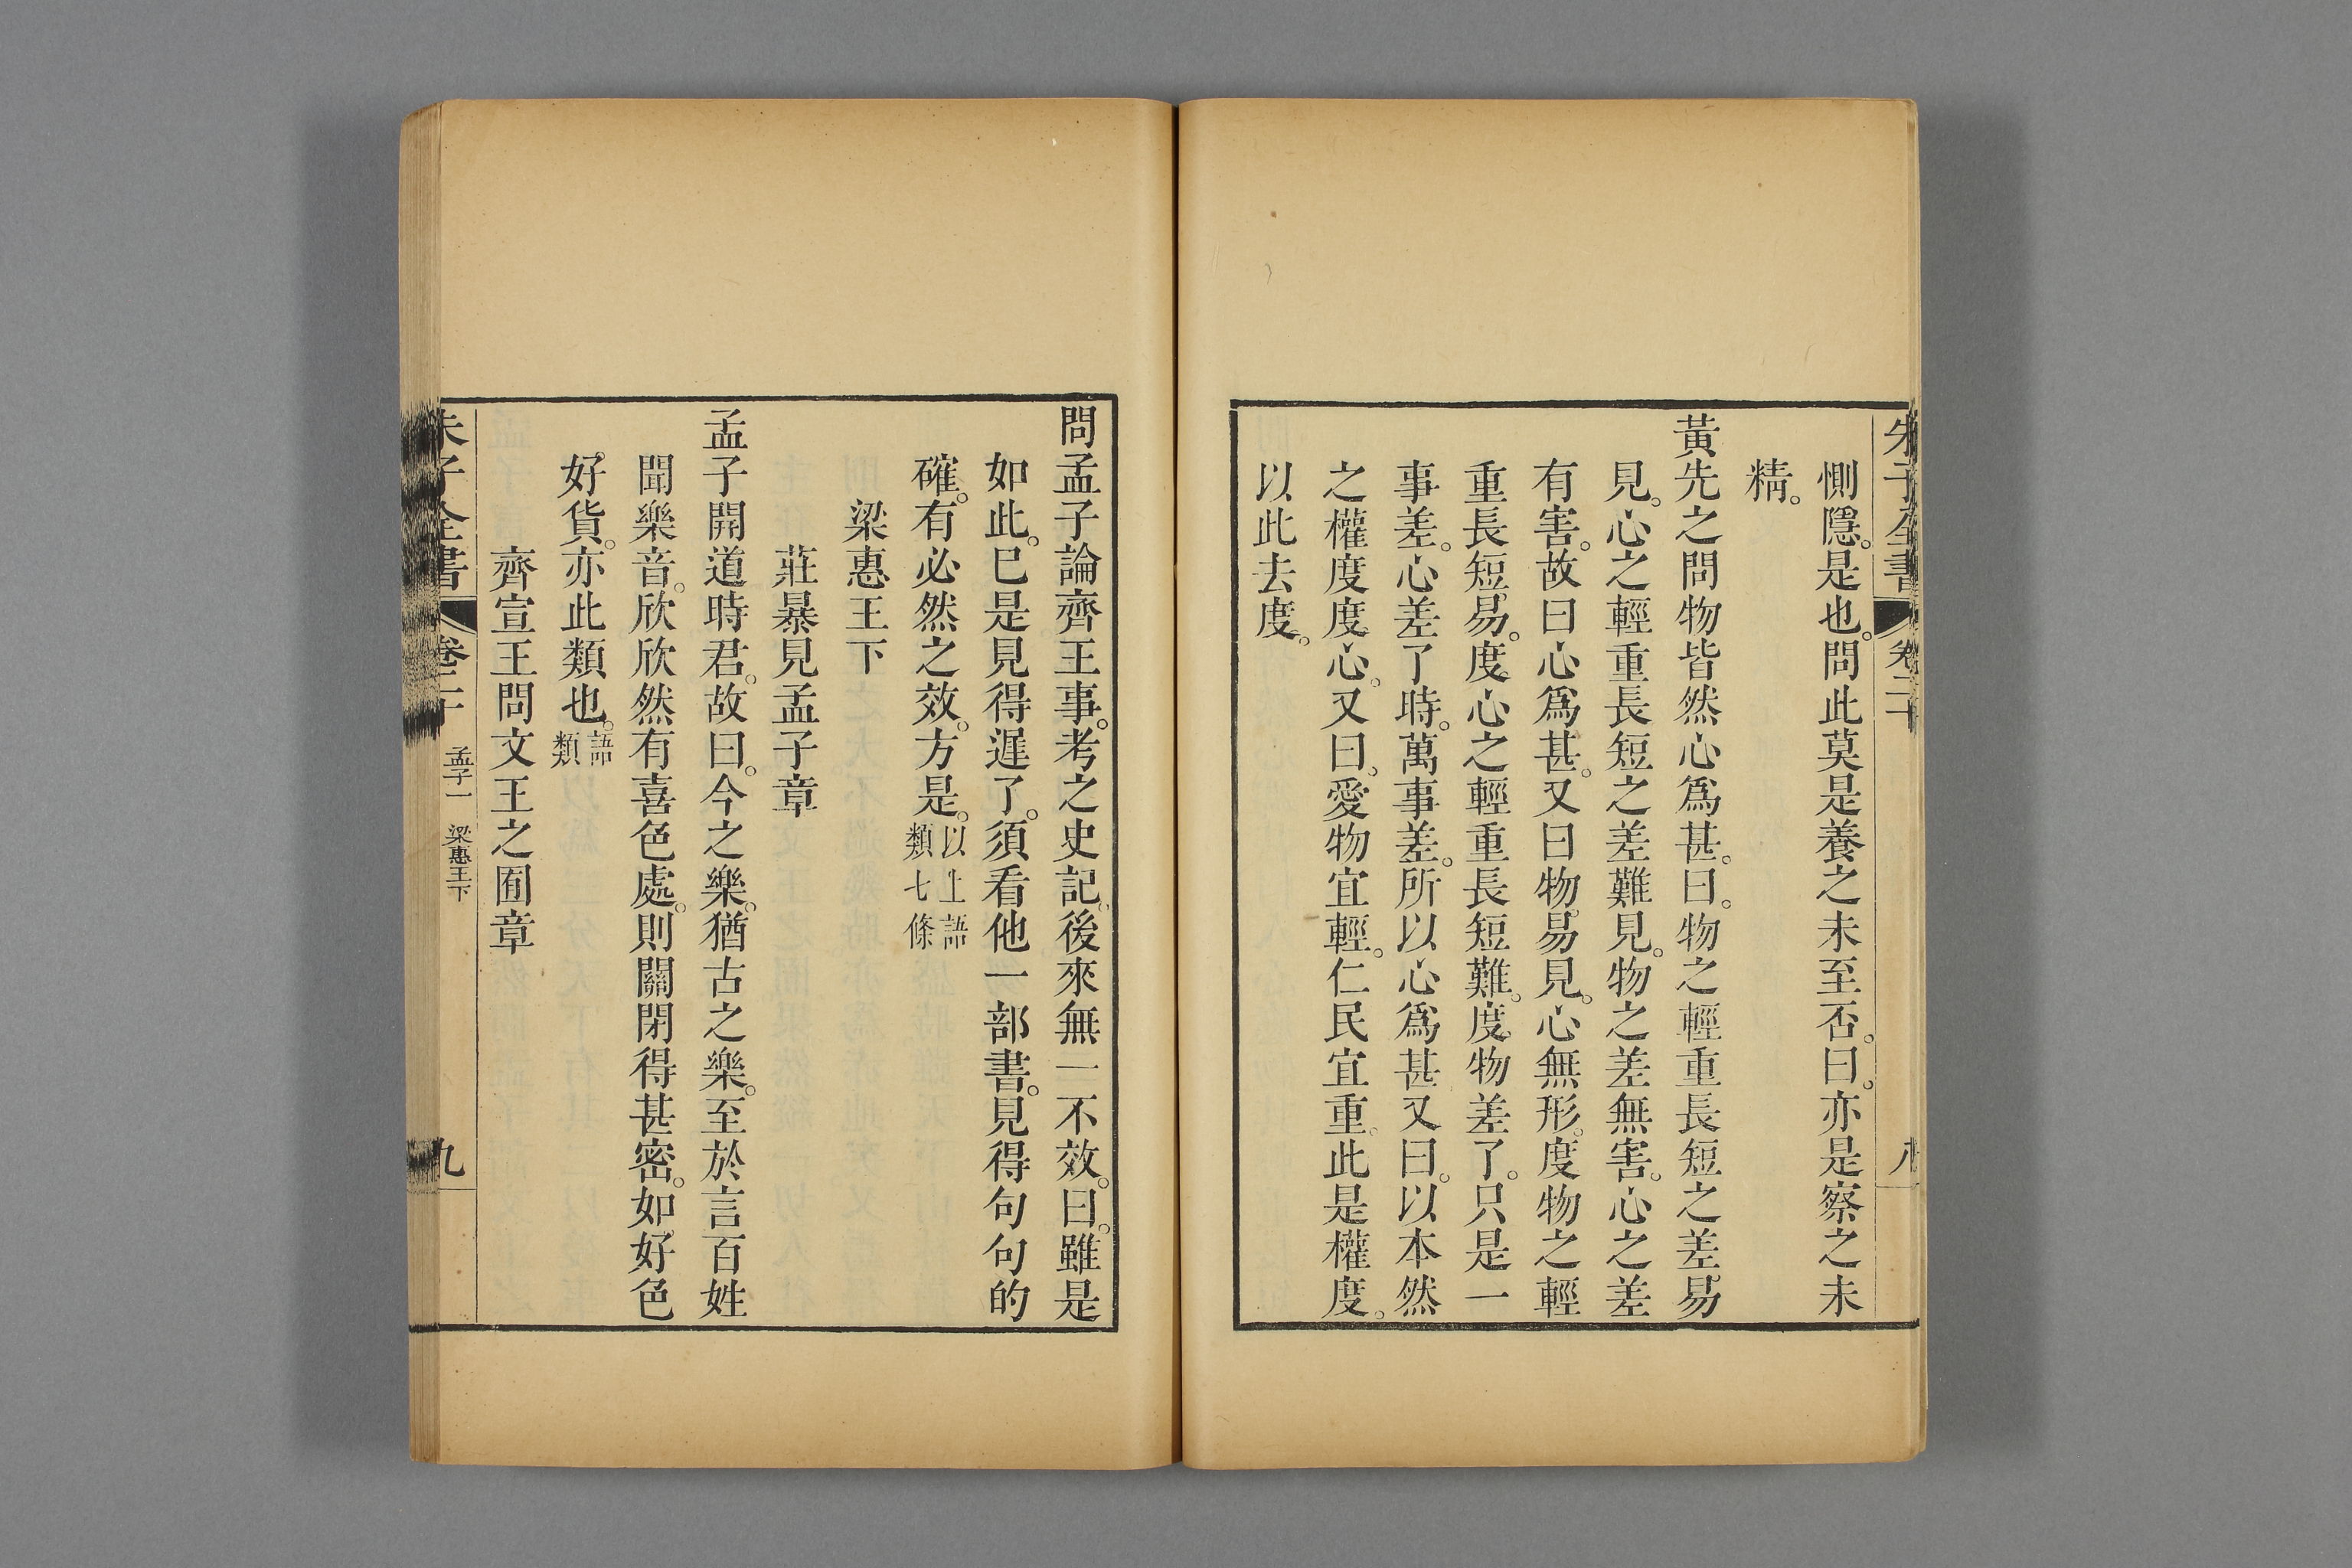 朱子全書 卷二十 八
惻隱。是也。問此莫是養之未至否。曰。亦是察之未
精。
黃先之問物皆然心爲甚。曰。物之輕重長短之差易
見。心之輕重長短之差難見。物之差無害。心之差
有害。故曰心爲甚。又曰物易見。心無形。度物之輕
重長短易。度心之輕重長短難。度物差了。只是一
事差。心差了時。萬事差。所以心爲甚又曰。以本然
之權度度心。又曰。愛物宜輕。仁民宜重。此是權度。
以此去度。
問孟子論齊王事。考之史記。後來無一不效。曰。雖是
如此。巳是見得遲了。須看他一部書。見得句句的
確。有必然之效。方是。以上語類七條
梁惠王下
莊暴見孟子章
孟子開道時君。故曰。今之樂。猶古之樂。至於言百姓
聞樂音。欣欣然有喜色處。則關閉得甚密。如好色
好貨。亦此類也。語類
齊宣王問文王之囿章
朱子全書 卷二十 孟子一 梁惠王下 九